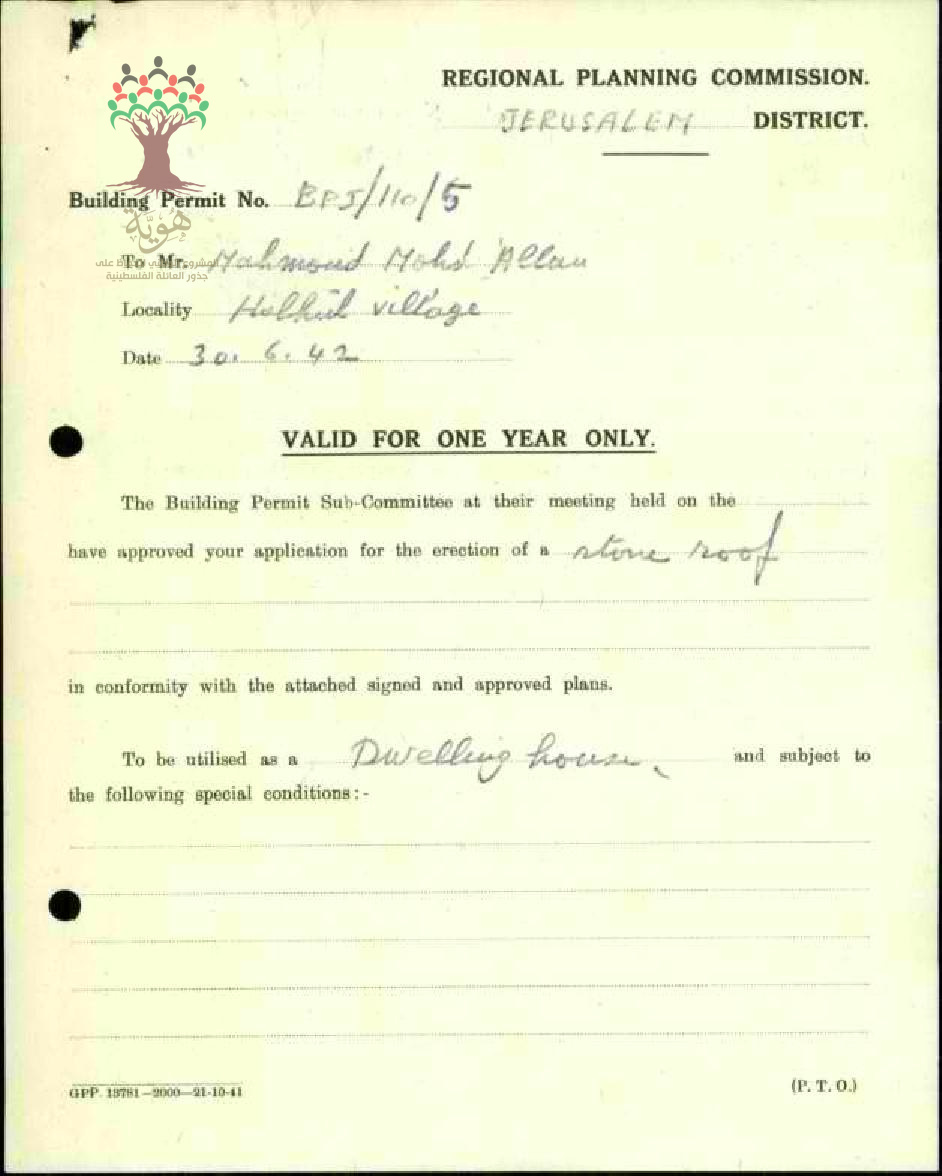 REGIONAL PLANNING COMMISSION.
JERUSALEM DISTRICT.
Building Permit No. BPJ/110/5
هُويَّة
المشروع الوطني للحفاظ على
جذور العائلة الفلسطينية
To Mr. Mahmoud Mohd Allan
Locality Halhul village
Date 30. 6. 42
VALID FOR ONE YEAR ONLY.
The Building Permit Sub-Committee at their meeting held on the
have approved your application for the erection of a stone roof
in conformity with the attached signed and approved plans.
To be utilised as a Dwelling house. and subject to
the following special conditions:-
GPP. 13781—2000—21-10-41
(P. T. O.)